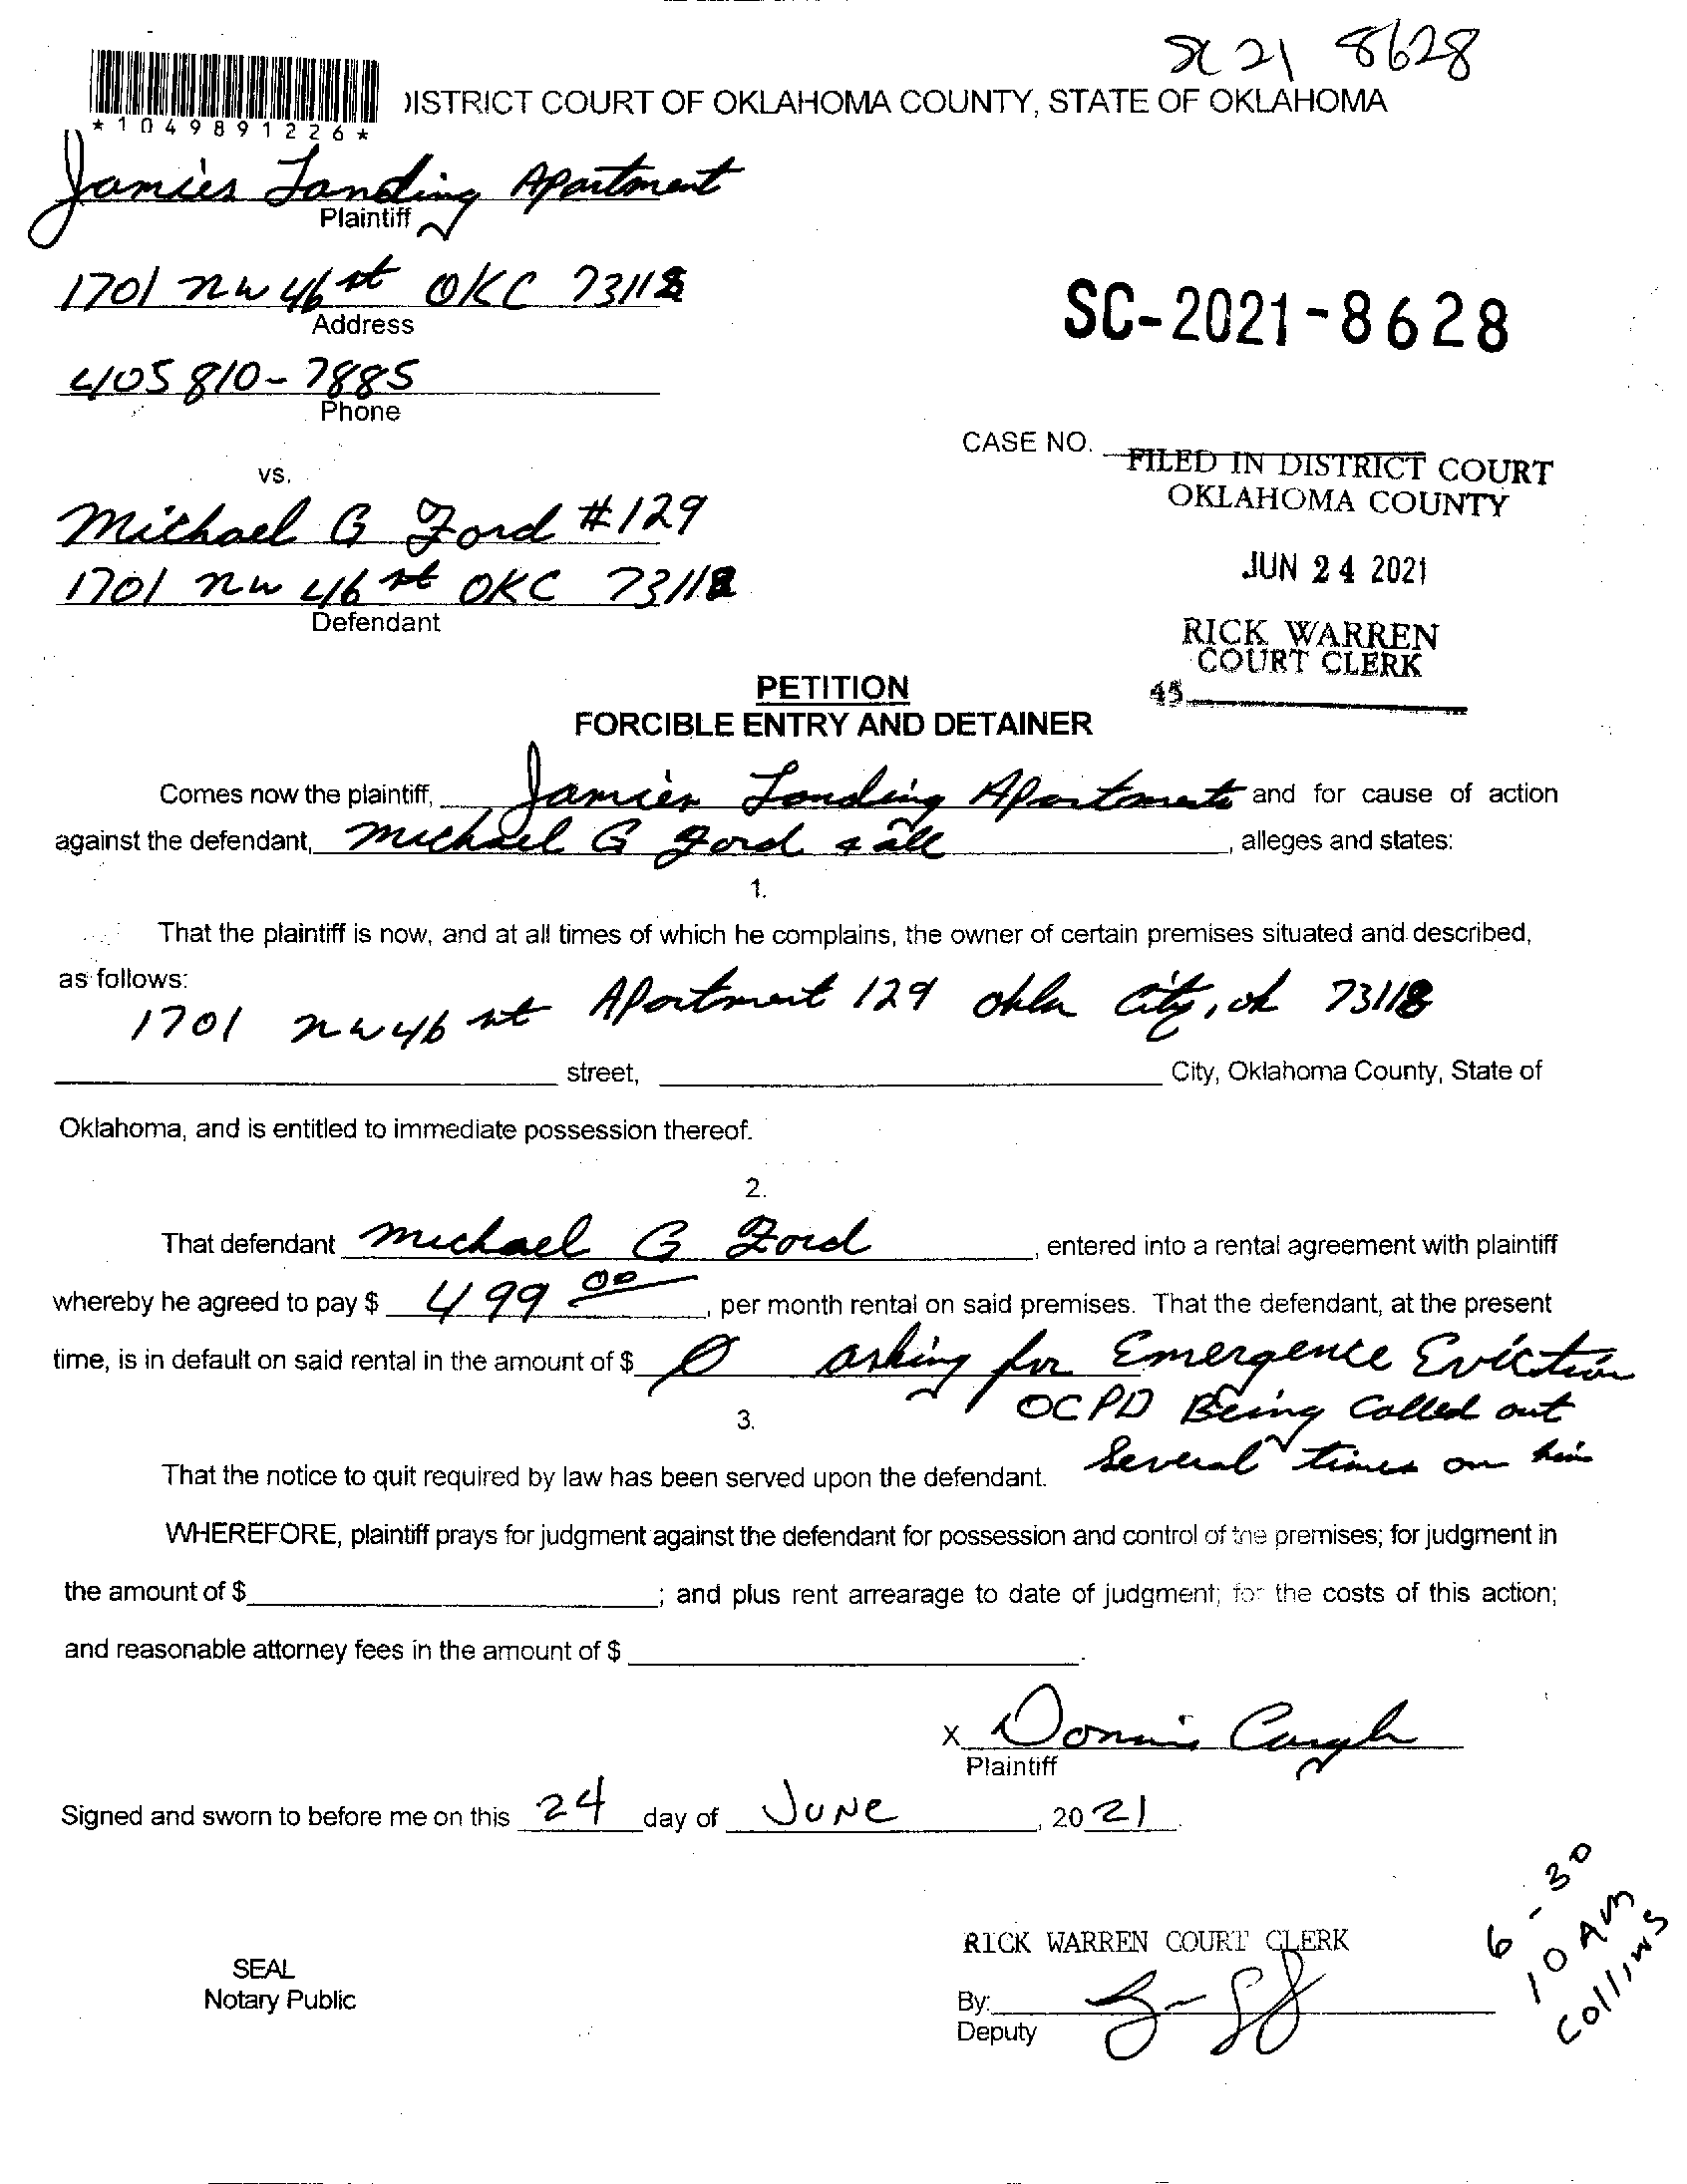 SC 21 8628
*1049891226*
DISTRICT COURT OF OKLAHOMA COUNTY, STATE OF OKLAHOMA
Jamies Landing Apartment
Plaintiff
1701 NW 46 st OKC 73118
Address
405 810-7885
Phone
SC-2021-8628
CASE NO.
FILED IN DISTRICT COURT
OKLAHOMA COUNTY
JUN 24 2021
RICK WARREN
COURT CLERK
45
vs.
Michael G Ford #129
1701 NW 46 st OKC 73118
Defendant
PETITION
FORCIBLE ENTRY AND DETAINER
Comes now the plaintiff, Jamies Landing Apartments and for cause of action
against the defendant, Michael G Ford & all, alleges and states:
1.
That the plaintiff is now, and at all times of which he complains, the owner of certain premises situated and described,
as follows:
1701 NW 46 st Apartment 129 Okla City, ok 73118
street, City, Oklahoma County, State of
Oklahoma, and is entitled to immediate possession thereof.
2.
That defendant Michael G Ford, entered into a rental agreement with plaintiff
whereby he agreed to pay $ 499 00, per month rental on said premises. That the defendant, at the present
time, is in default on said rental in the amount of $ 0 asking for Emergence Eviction
OCPD Being Called out
3.
Several times on him
That the notice to quit required by law has been served upon the defendant.
WHEREFORE, plaintiff prays for judgment against the defendant for possession and control of the premises; for judgment in
the amount of $ ; and plus rent arrearage to date of judgment; for the costs of this action;
and reasonable attorney fees in the amount of $ .
X
Plaintiff
Signed and sworn to before me on this 24 day of June, 2021.
6-30
10 AM
Collins
RICK WARREN COURT CLERK
SEAL
Notary Public
By:
Deputy